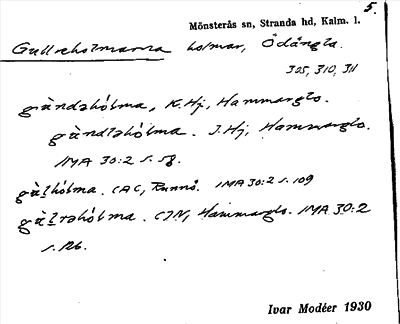 5.
Mönsterås sn, Stranda hd, Kalm. l.
Gullreholmarna holmar, Ödängla.
305, 310, 311
gùndəhólma, K.Hj, Hammarglo.
gùndləhólma. J.Hj, Hammarglo.
IMA 30:2 s. 58.
gùlhólma. CAC, Runnö. IMA 30:2 s. 109
gùltəhólma. CJN, Hammarglo. IMA 30:2
s. 126.
Ivar Modéer 1930